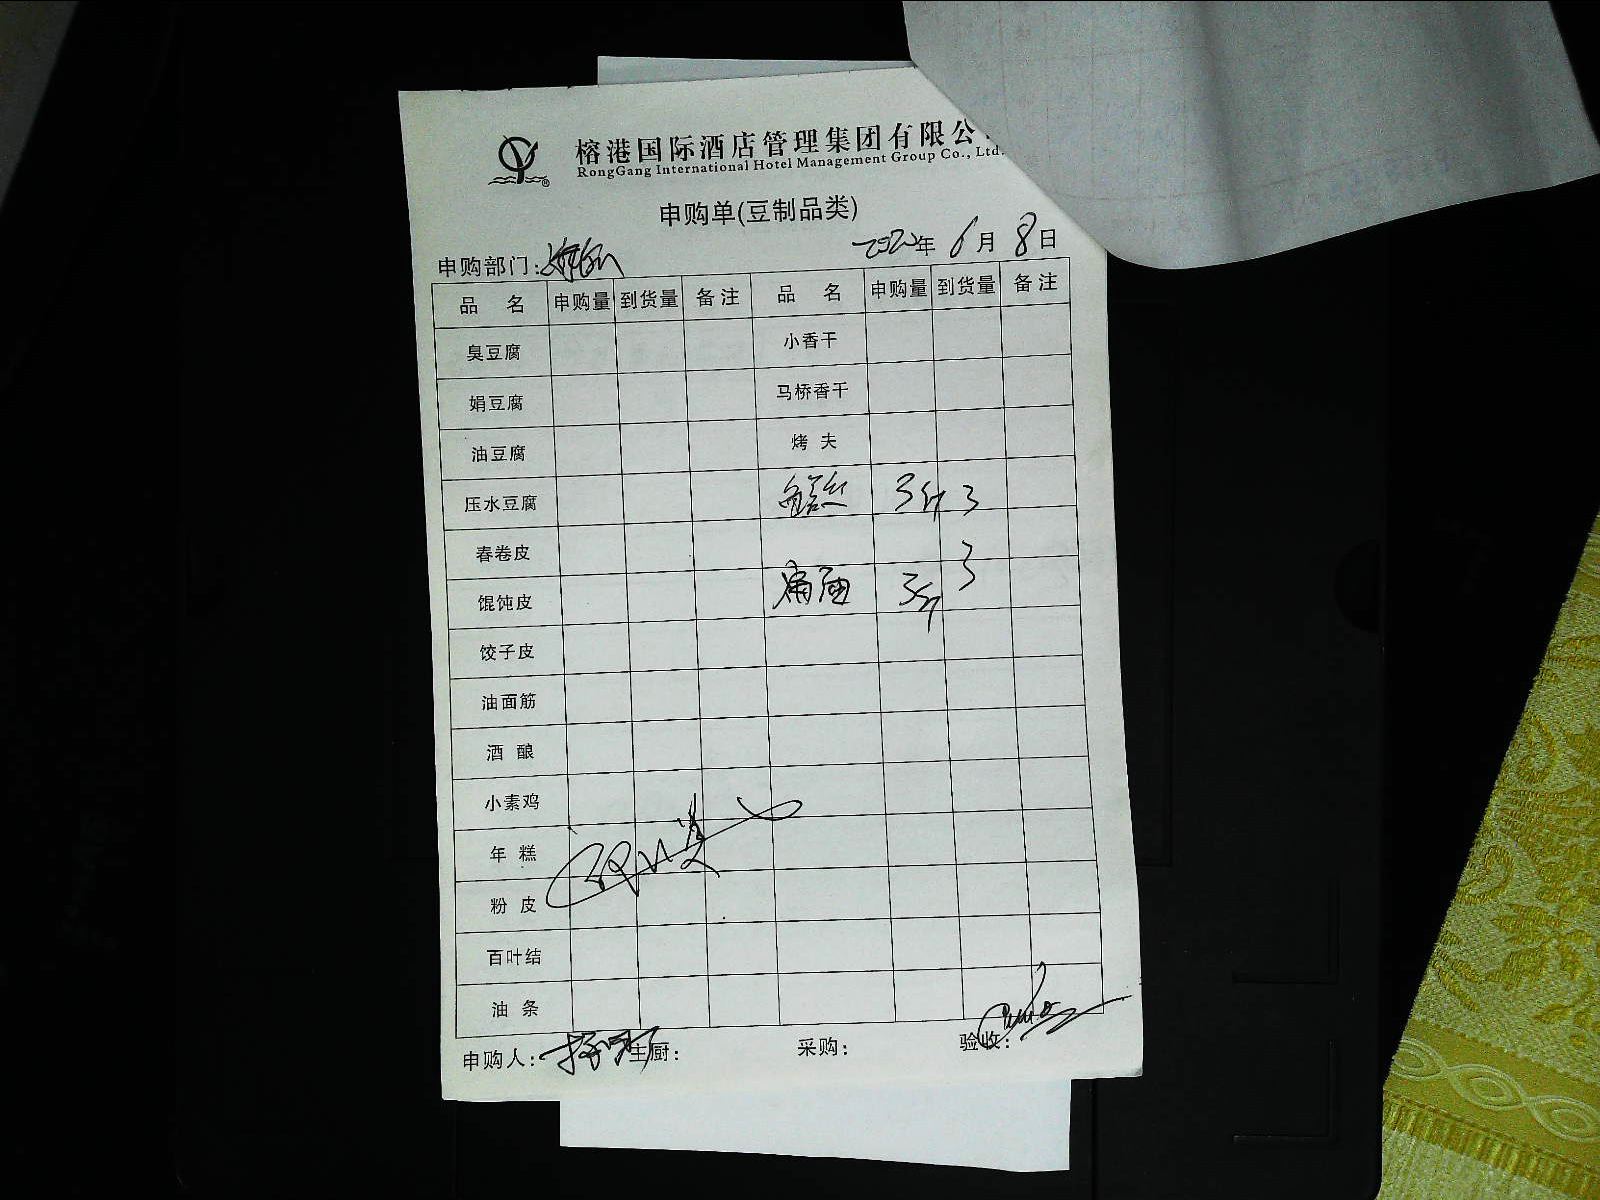 榕港国际酒店管理集团有限公
RongGang International Hotel Management Group Co., Ltd.
申购单(豆制品类)
申购部门: 2020年 6月 8日
品 名 申购量 到货量 备注 品 名 申购量 到货量 备注
臭豆腐 小香干
娟豆腐 马桥香干
油豆腐 烤 夫
压水豆腐 3斤 3
春卷皮
馄饨皮 3斤 3
饺子皮
油面筋
酒 酿
小素鸡
年 糕
粉 皮
百叶结
油 条
申购人: 主厨: 采购: 验收: